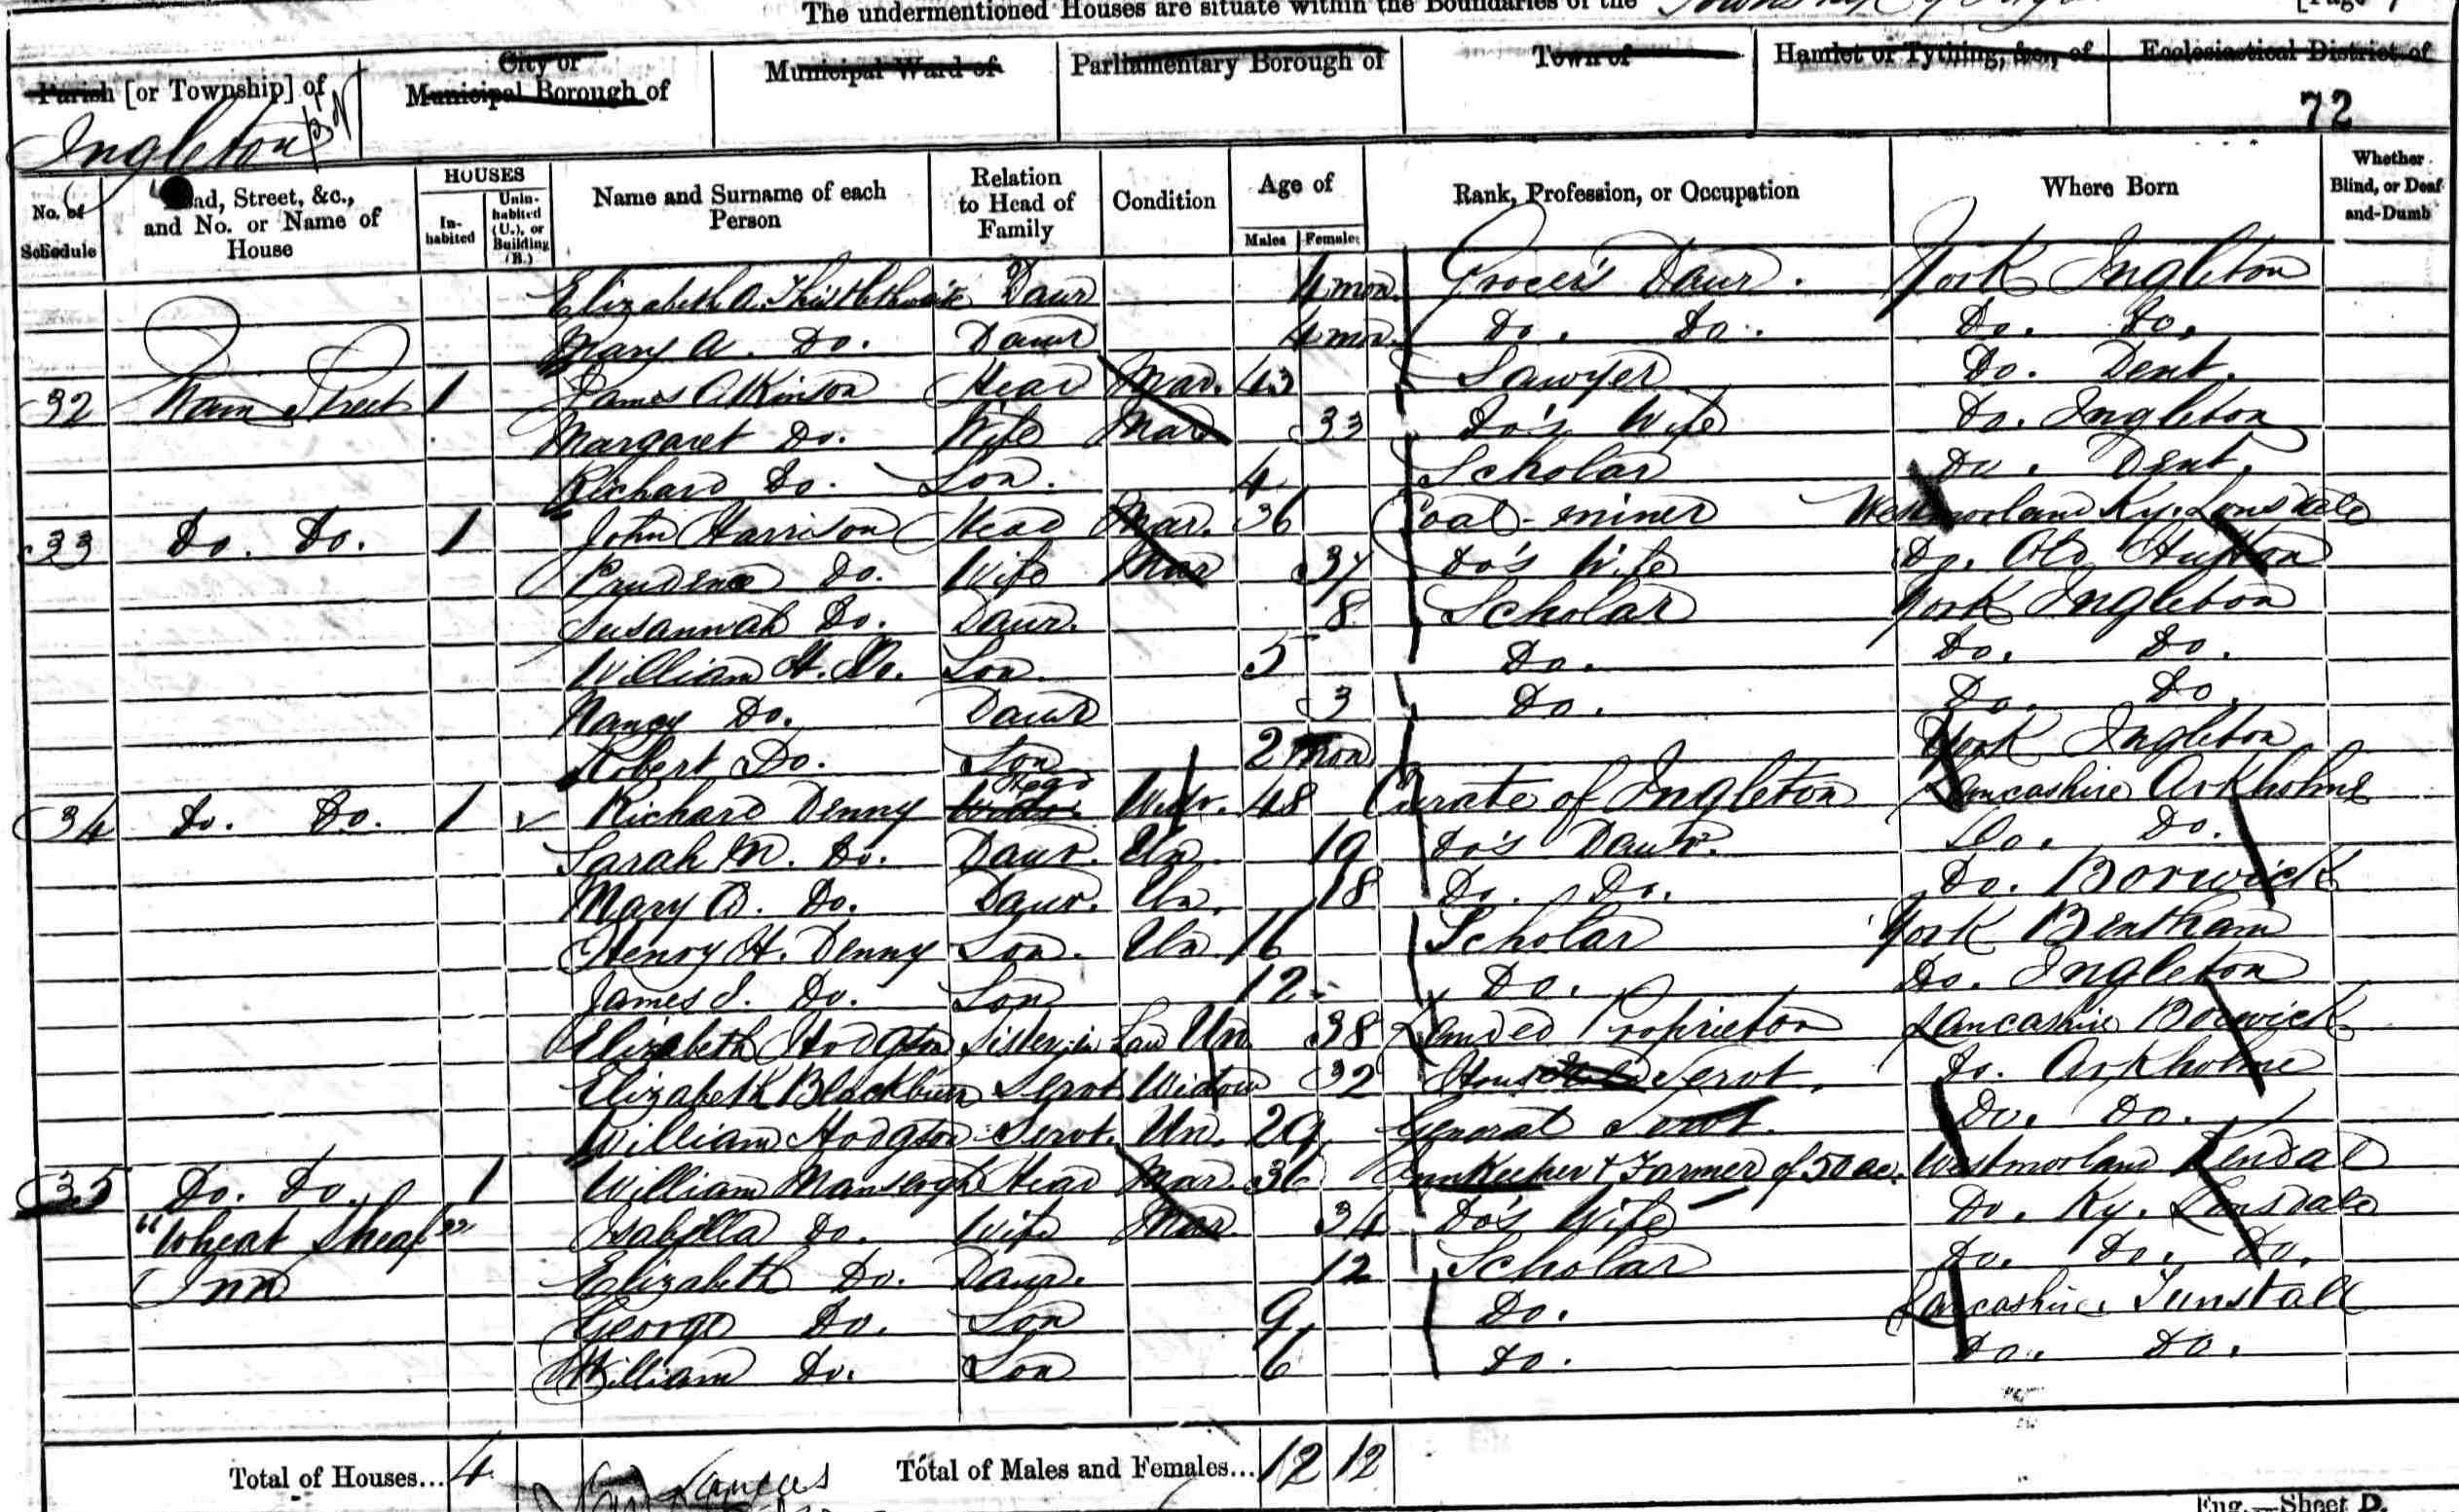 The undermentioned Houses are situate within the Boundaries of the Township of
Parish [or Township] of
Ingleton
City or Municipal Borough of
Municipal Ward of
Parliamentary Borough of
Town of
Hamlet or Tything, &c., of
Ecclesiastical District of
72
No. of Schedule
Road, Street, &c., and No. or Name of House
HOUSES
In-habited
Unin-habited (U.), or Building (B.)
Name and Surname of each Person
Relation to Head of Family
Condition
Age of
Males
Females
Rank, Profession, or Occupation
Where Born
Whether Blind, or Deaf-and-Dumb
Elizabeth A. Thistlethwaite Daur 4 mon. Grocer's Daur. York Ingleton
Mary A. Do. Daur 4 mon. Do. Do. Do. Do.
32 Main Street 1 James Atkinson Head Mar. 43 Sawyer Do. Dent.
Margaret Do. Wife Mar 33 Do's Wife Do. Ingleton
Richard Do. Son. 4 Scholar Do. Dent.
33 Do. Do. 1 John Harrison Head Mar. 36 Coal-miner Westmorland Ky. Lonsdale
Prudence Do. Wife Mar 37 Do's Wife Do. Old Hutton
Susannah Do. Daur. 8 Scholar York Ingleton
William H. Do. Son. 5 Do. Do. Do.
Nancy Do. Daur 3 Do. Do. Do.
Robert Do. Son 2 mon York Ingleton
34 Do. Do. 1 Richard Denny Head Widr. 48 Curate of Ingleton Lancashire Arkholme
Sarah M. Do. Daur. Un. 19 Do's Daur. Do. Do.
Mary A. Do. Daur. Un. 18 Do. Do. Do. Borwick
Henry H. Denny Son. Un. 16 Scholar York Bentham
James I. Do. Son 12 Do. Do. Ingleton
Elizabeth Hodgson Sister in Law Un. 38 Landed Proprietor Lancashire Borwick
Elizabeth Blackburn Servt Widow 32 House Servt. Do. Arkholme
William Hodgson Servt. Un. 29 General Servt. Do. Do.
35 Do. Do. 1 William Mansergh Head Mar. 36 Innkeeper & Farmer of 50 ac. Westmorland Kendal
"Wheat Sheaf" Isabella Do. Wife Mar. 34 Do's Wife Do. Ky. Lonsdale
Inn Elizabeth Do. Daur. 12 Scholar Do. Do. Do.
George Do. Son 9 Do. Lancashire Tunstall
William Do. Son 6 Do. Do. Do.
Total of Houses... 4 Total of Males and Females... 12 12
Eng.—Sheet D.